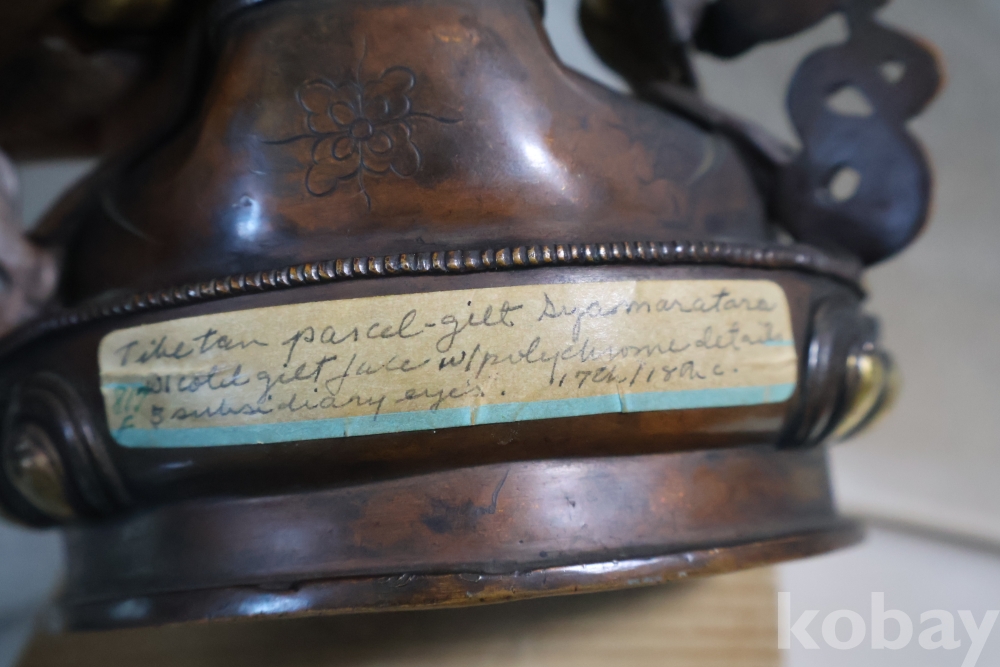 Tibetan parcel-gilt Syasmaratara
w/ cold gilt face w/ polychrome details
5 subsidiary eyes. 17th/18th c.
kobay